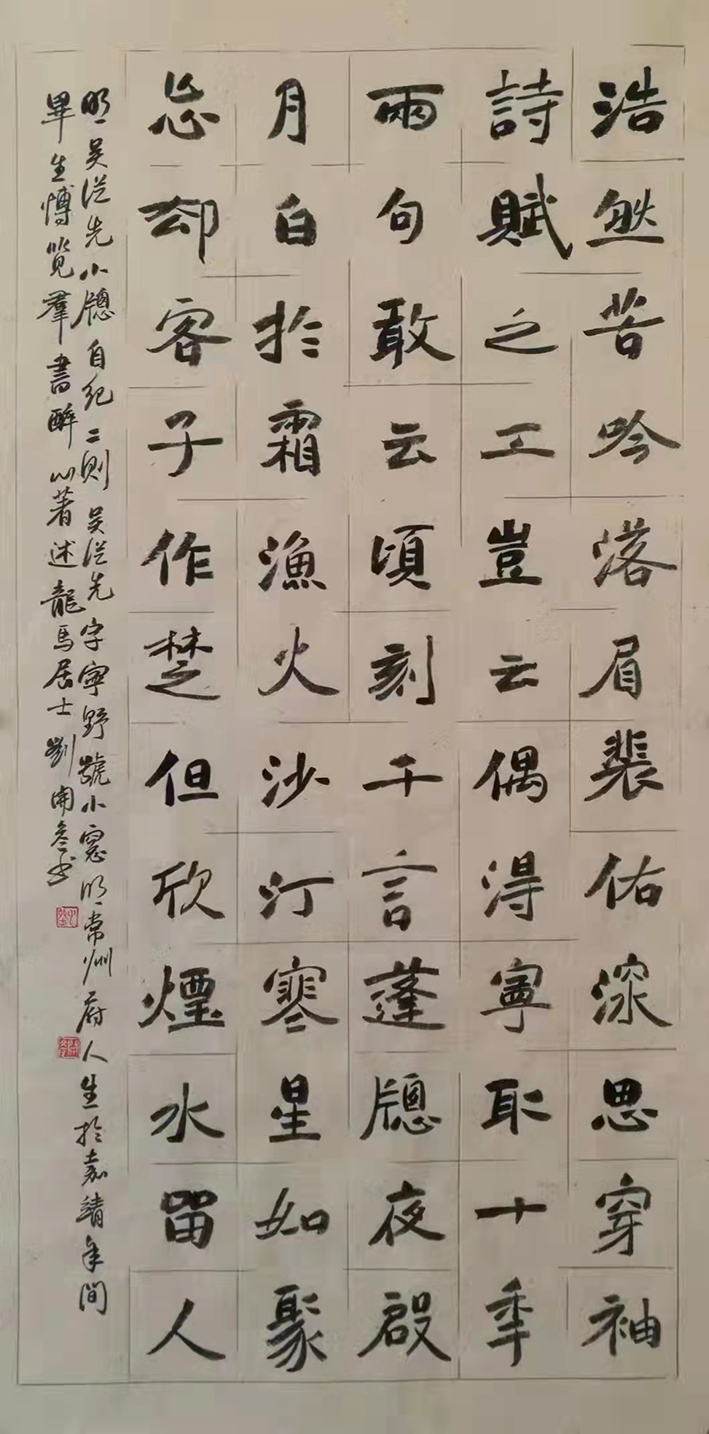 浩然苦吟落眉裴佑深思穿袖
詩賦之工豈云偶得寧耻十季
雨句敢云頃刻千言蓬牕夜啟
月白於霜漁火沙汀寒星如聚
忘却客子作楚但欣煙水留人
明吴從先小牕自紀二則吴從先字寧野號小窓明常州府人生於嘉靖年间
畢生愽览羣書醉心著述龍馬居士劉開